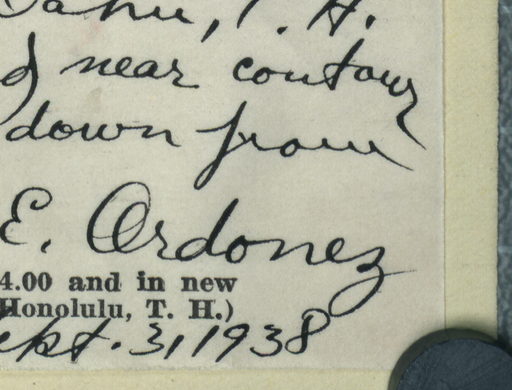 Oahu, T. H.
near contour
down from
E. Ordonez
4.00 and in new
Honolulu, T. H.)
ept. 3, 1938